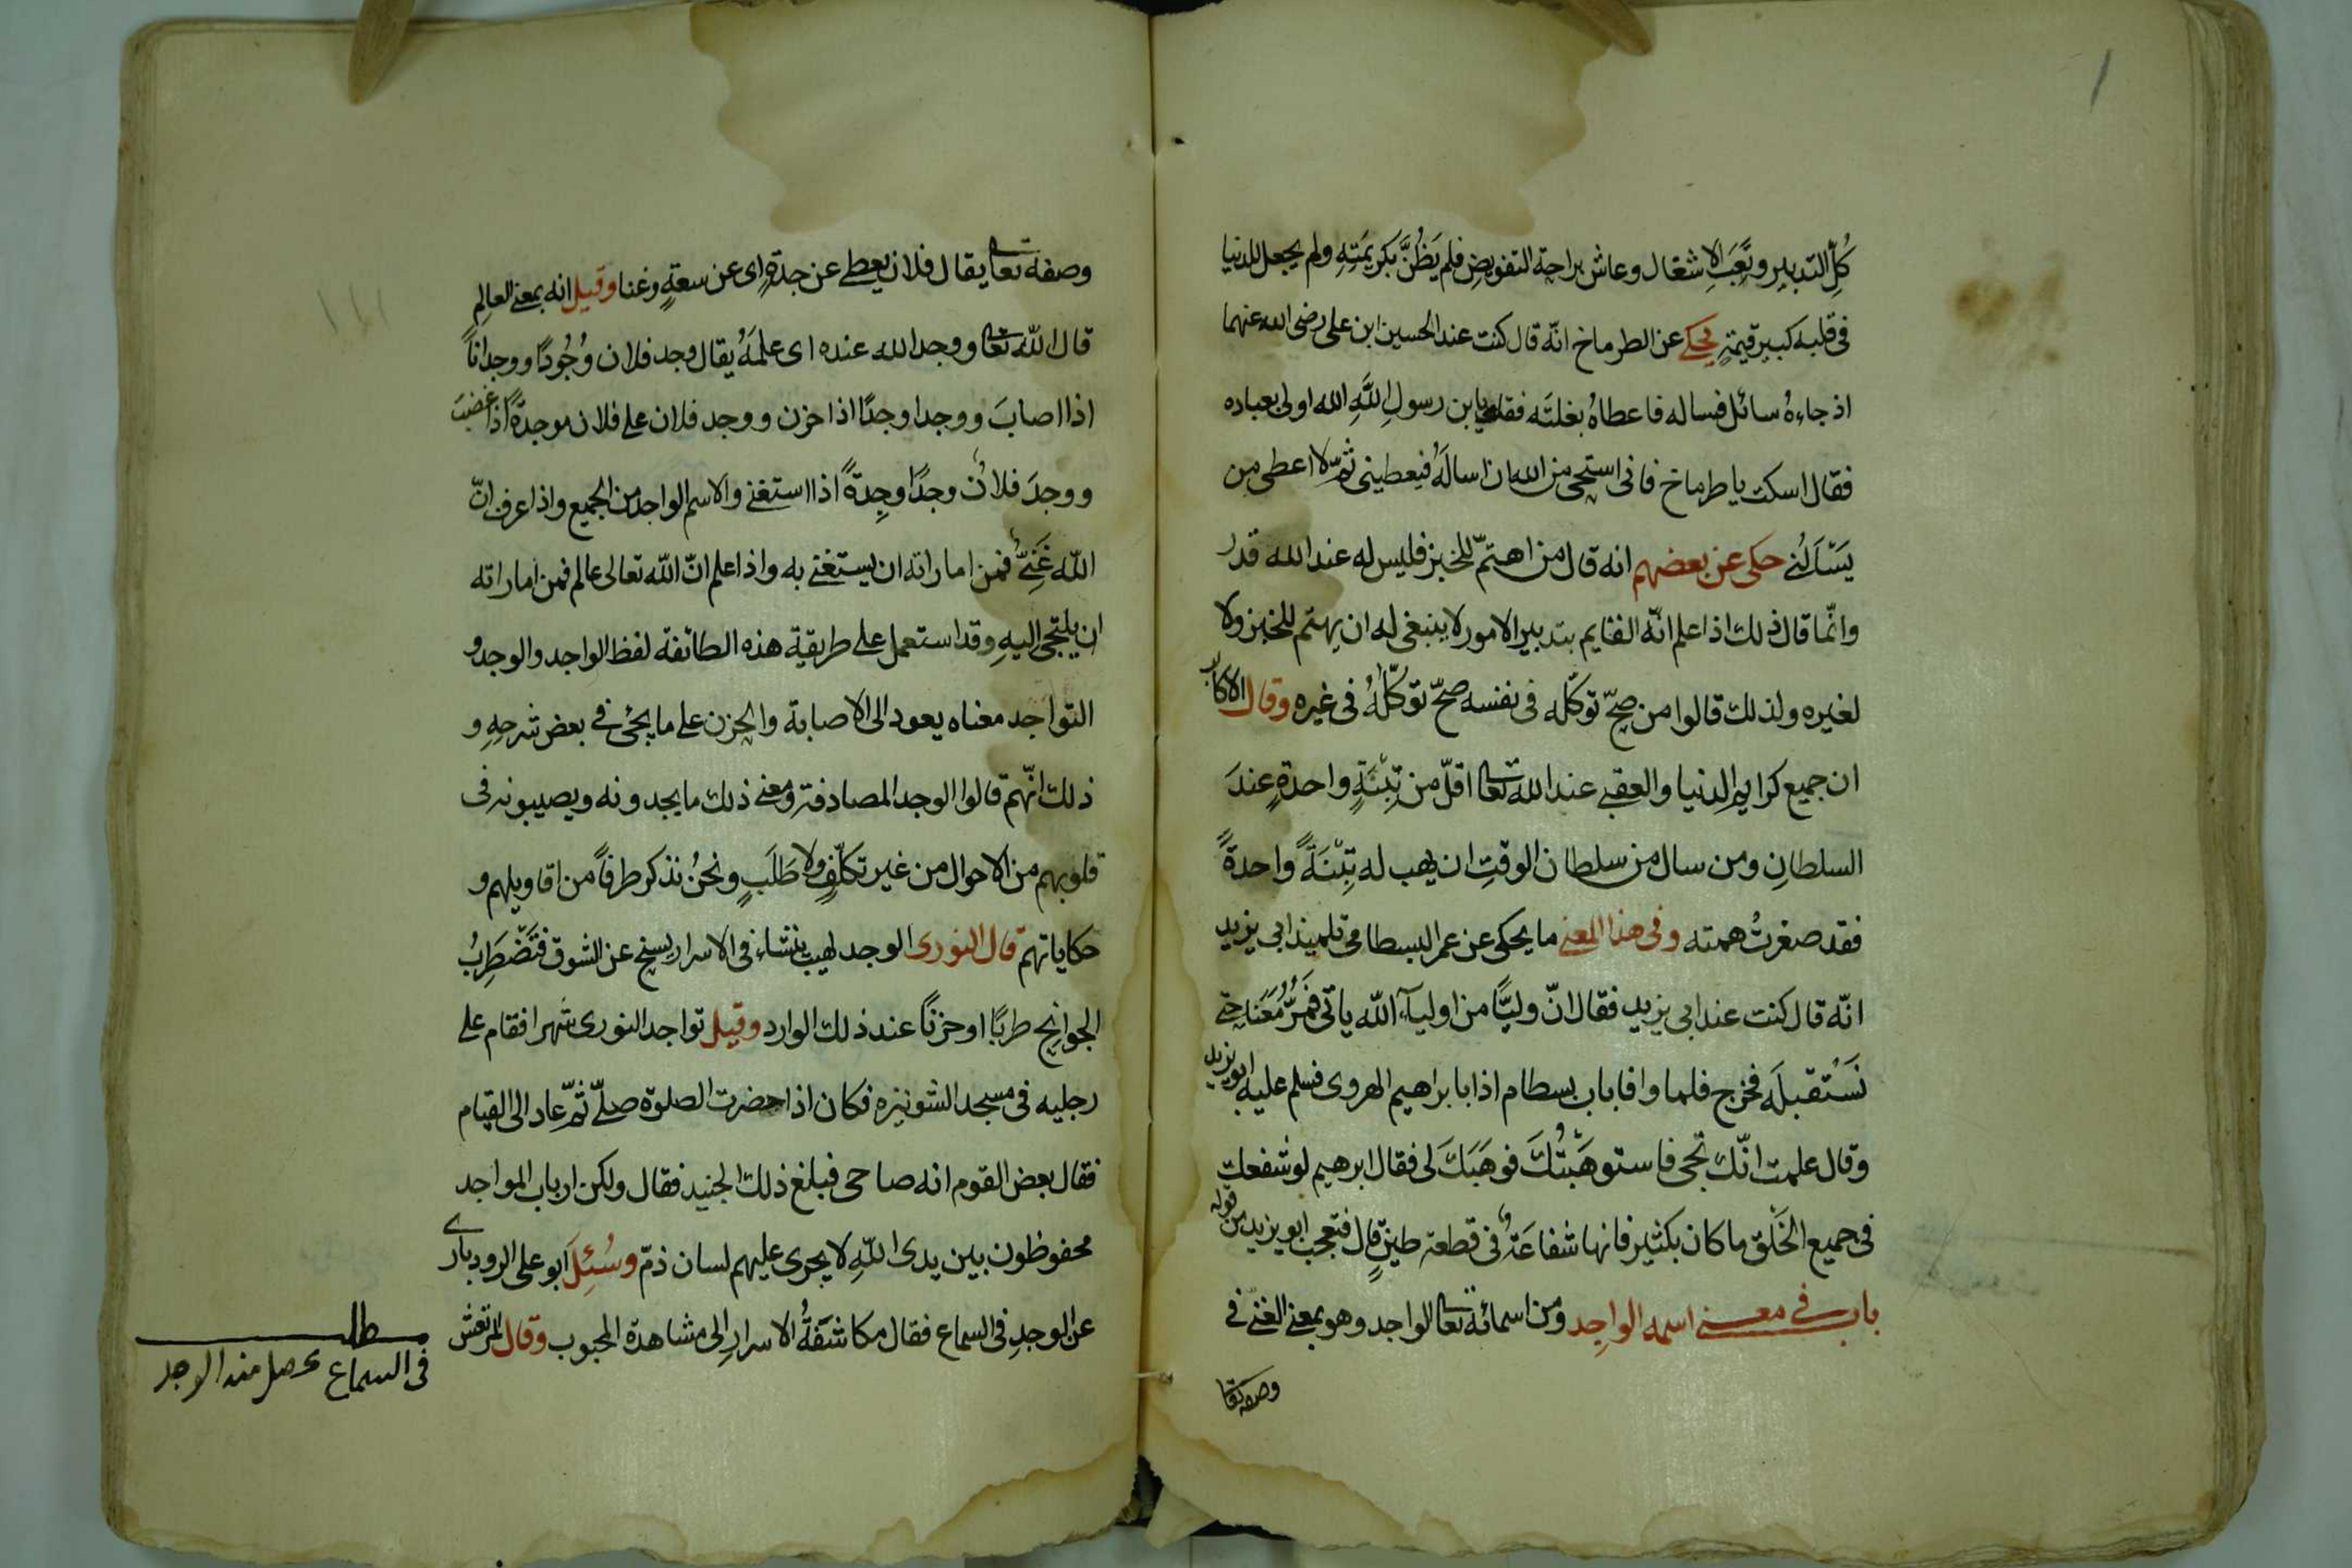 كُلِّ التدبير وتَعَبَ الاشغال وعاش براحة التفويض فلم يَظُنَّ بكريمَتِهِ ولم يجعل للدنيا
فى قلبه كبير قيمةٍ يحكى عن الطرماخ انّه قال كنت عند الحسين ابن على رضى الله عنهما
اذ جاءهُ سائل فساله فاعطاهُ بغلتَه فقلت يابن رسولِ اللَّهِ الله اولى بعباده
فقال اسكت يا طرماخ فانى استحى من الله ان اسالَهُ فيعطينى ثمّ لا اعطى من
يَسْاَلُنى حكى عن بعضهم انه قال من اهتمّ للخبز فليس له عند الله قدر
وانّما قال ذلك اذا علم انّه القايم بتدبير الامور لا ينبغى له ان يهتم للخبز ولا
لغيره ولذلك قالوا من صحّ توكّله فى نفسه صحّ توكّلهُ فى غيره وقال الاكابر
ان جميع كرايم الدنيا والعقبى عند الله تعا اقلّ من تِبْنَةٍ واحدةٍ عندَ
السلطانِ ومن سال من سلطان الوقتِ ان يهب له تِبْنَةً واحدةً
فقد صغرتْ همته وفى هذا المعنى ما يحكى عن عمر البسطامى تلميذ ابى يزيد
انّه قال كنت عند ابى يزيد فقال انّ وليًّا من اوليآء الله ياتى فَمُرُّ مَعَنا حتى
نَسْتقبلَه فخرج فلما وافا باب بسطام اذا بابراهيم الهروى فسلم عليه ابو يزيد
وقال علمت انّك تجى فاستوهَبْتُكَ فوهَبَكَ لى فقال ابرهيم لو شفعت
فى جميع الخَلْق ما كان بكثير فانها شفاعَةٌ فى قطعة طينٍ قال فتعجب ابو يزيد من قوله
باب فى معنى اسمه الواجِد ومن اسمائه تعا الواجد وهو بمعنى الغنىّ فى
وصفه تعا
وصفه تعا يقال فلان يعطى عن جدةٍ اى عن سعةٍ وغنا وقيل انه بمعنى العالِم
قال اللّه تعا ووجد الله عنده اى علمَهُ يقال وجد فلان وُجُودًا ووجدانًا
اذا اصابَ ووجد اوجدًا اذا حزن ووجد فلان على فلان موجدةً اذا غضبَ
ووجدَ فلانٌ وجدًا وجِدةً اذا استغنى والاسم الواجد من الجميع واذا عرف انّ
اللّه غَنِىٌّ فمن اماراته ان يستغنى به واذا علم انّ اللّه تعالى عالم فمن اماراته
ان يلتجى اليهِ وقد استعمل على طريقية هذه الطائفة لفظ الواجد والوجد و
التواجد معناه يعود الى الاصابة والحزن على ما يجئ فى بعض شرحِهِ و
ذلك انّهم قالوا الوجد المصادفة ومعنى ذلك ما يجدونه ويصيبونه فى
قلوبهم من الاحوال من غير تكلّفٍ ولا طَلَبٍ ونحنُ نذكر طرفًا من اقاويلهم و
حكاياتهم قال النورى الوجد لهيب ينشاء فى الاسرار يسنح عن الشوق فتَضْطَرِبُ
الجوانح طربًا او حزنًا عند ذلك الوارد وقيل تواجد النورى شهرا فقام على
رجليه فى مسجد الشونيزه فكان اذا حضرت الصلوة صلّى ثمّ عاد الى القيام
فقال بعض القوم انه صاحى فبلغ ذلك الجنيد فقال ولكن ارباب المواجد
محفوظون بين يدى اللّهِ لا يجرى عليهم لسان ذمّ وسُئِلَ ابو على الرودبارى
عن الوجدِ فى السماع فقال مكاشَفةُ الاسرارِ الى مشاهدة المحبوب وقال المرتعش
مطلب
فى السماع يحصل منه الوجد